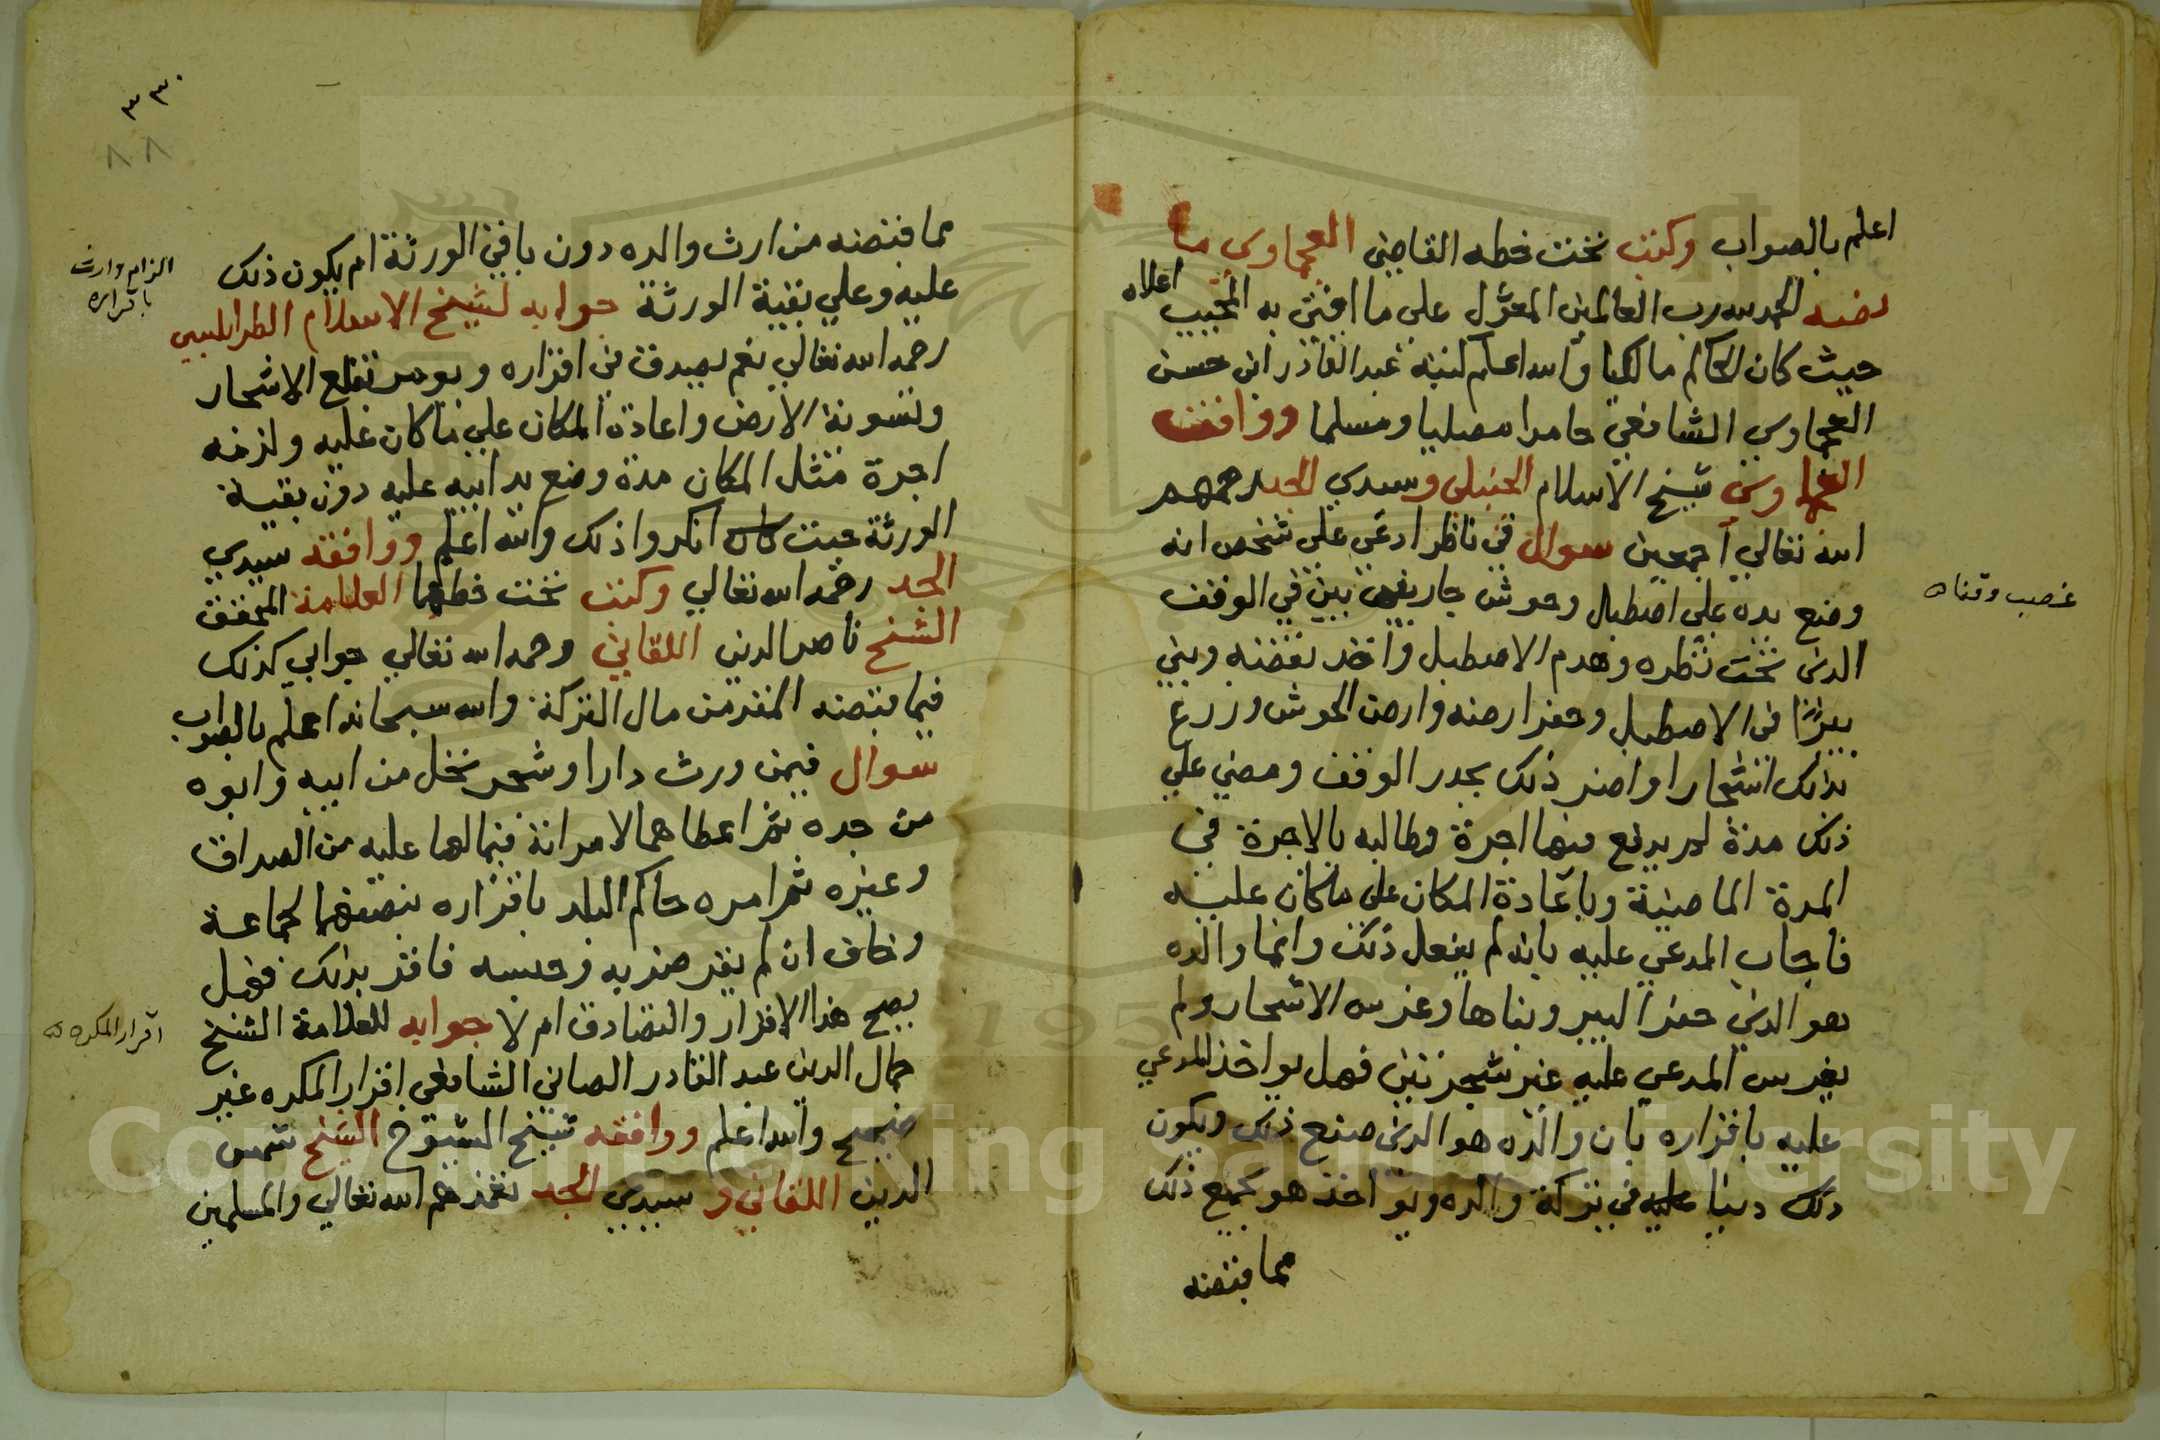 اعلم بالصواب وكتب تحت خطه القاضي العجماوي ما
نصه الحمد لله رب العالمين المعول على ما افتى به المجيب اعلاه
حيث كان الحاكم مالكيا والله اعلم كتبه عبد القادر ابن حسن
العجماوي الشافعي حامدا مصليا ومسلما ووافقت
العجماوي شيخ الاسلام الحنبلي وسيدي الجد رحمهم
الله تعالى اجمعين سوال في ناظر ادعى على شخص انه
وضع يده على اصطبل وحوش جاريين في الوقف
الذي تحت نظره وهدم الاصطبل واخذ نقضه وبنى
بيرا في الاصطبل وحفر ارضه وارض الحوش وزرع
بذلك اشجارا واضر ذلك بجدر الوقف ومضى على
ذلك مدة لم يدفع فيها اجرة وطالبه بالاجرة في
المدة الماضية وباعادة المكان على ما كان عليه
فاجاب المدعي عليه بانه لم يفعل ذلك وانما والده
هو الذي حفر البير وبناها وغرس الاشجار ولم
يغرس المدعي عليه غير شجرتين فهل يواخذ المدعي
عليه باقراره بان والده هو الذي صنع ذلك ويكون
ذلك دينا عليه في تركة والده ويواخذ هو بجميع ذلك
مما قبضه
غصب وقناه
٣٣٠
٨٨
مما قبضه من ارث والده دون باقي الورثة ام يكون ذلك
عليه وعلى بقية الورثة جوابه لشيخ الاسلام الطرابلسي
رحمه الله تعالى نعم يصدق في اقراره ويومر بقلع الاشجار
وتسوية الارض واعادة المكان على ما كان عليه ولزمه
اجرة مثل المكان مدة وضع يد ابيه عليه دون بقية
الورثة حيث كان انكروا ذلك والله اعلم ووافقه سيدي
الجد رحمه الله تعالى وكتب تحت خطهما العلامة المحقق
الشيخ ناصر الدين اللقاني رحمه الله تعالى جوابي كذلك
فيما قبضه المقر من مال التركة والله سبحانه اعلم بالصواب
سوال فيمن ورث دارا وشجر نخل من ابيه وابوه
من جده ثم اعطاهما لامراته فيما لها عليه من الصداق
وغيره ثم امره حاكم البلد باقراره بنصفهما لجماعة
وخاف ان لم يقر ضربه وحبسه فاقر بذلك فهل
يصح هذا الاقرار والتصادق ام لا جوابه للعلامة الشيخ
جمال الدين عبد القادر الصاني الشافعي اقرار المكره غير
صحيح والله اعلم ووافقه شيخ الشيوخ الشيخ شمس
الدين اللقاني وسيدي الجد تغمدهم الله تعالى والمسلمين
الزام وارث
باقراره
اقرار المكره
Copyright © King Saud University
195